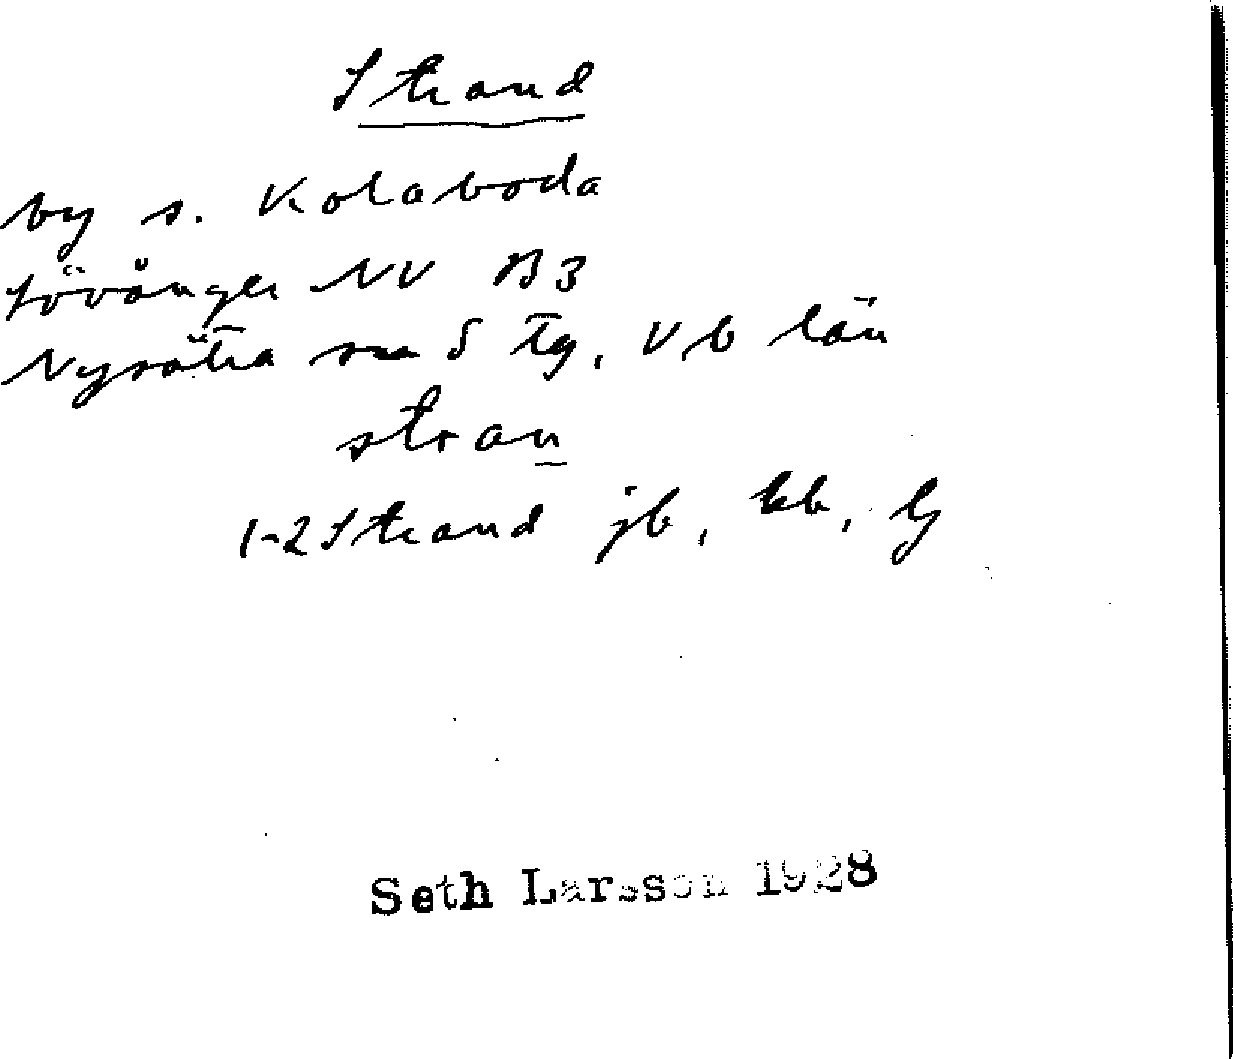 Strand
by s. Kolaboda
Lövånger NV B3
Nysätra sn S Tg, Vb län
stran
1-2 Strand jb, kb, G
Seth Larsson 1928